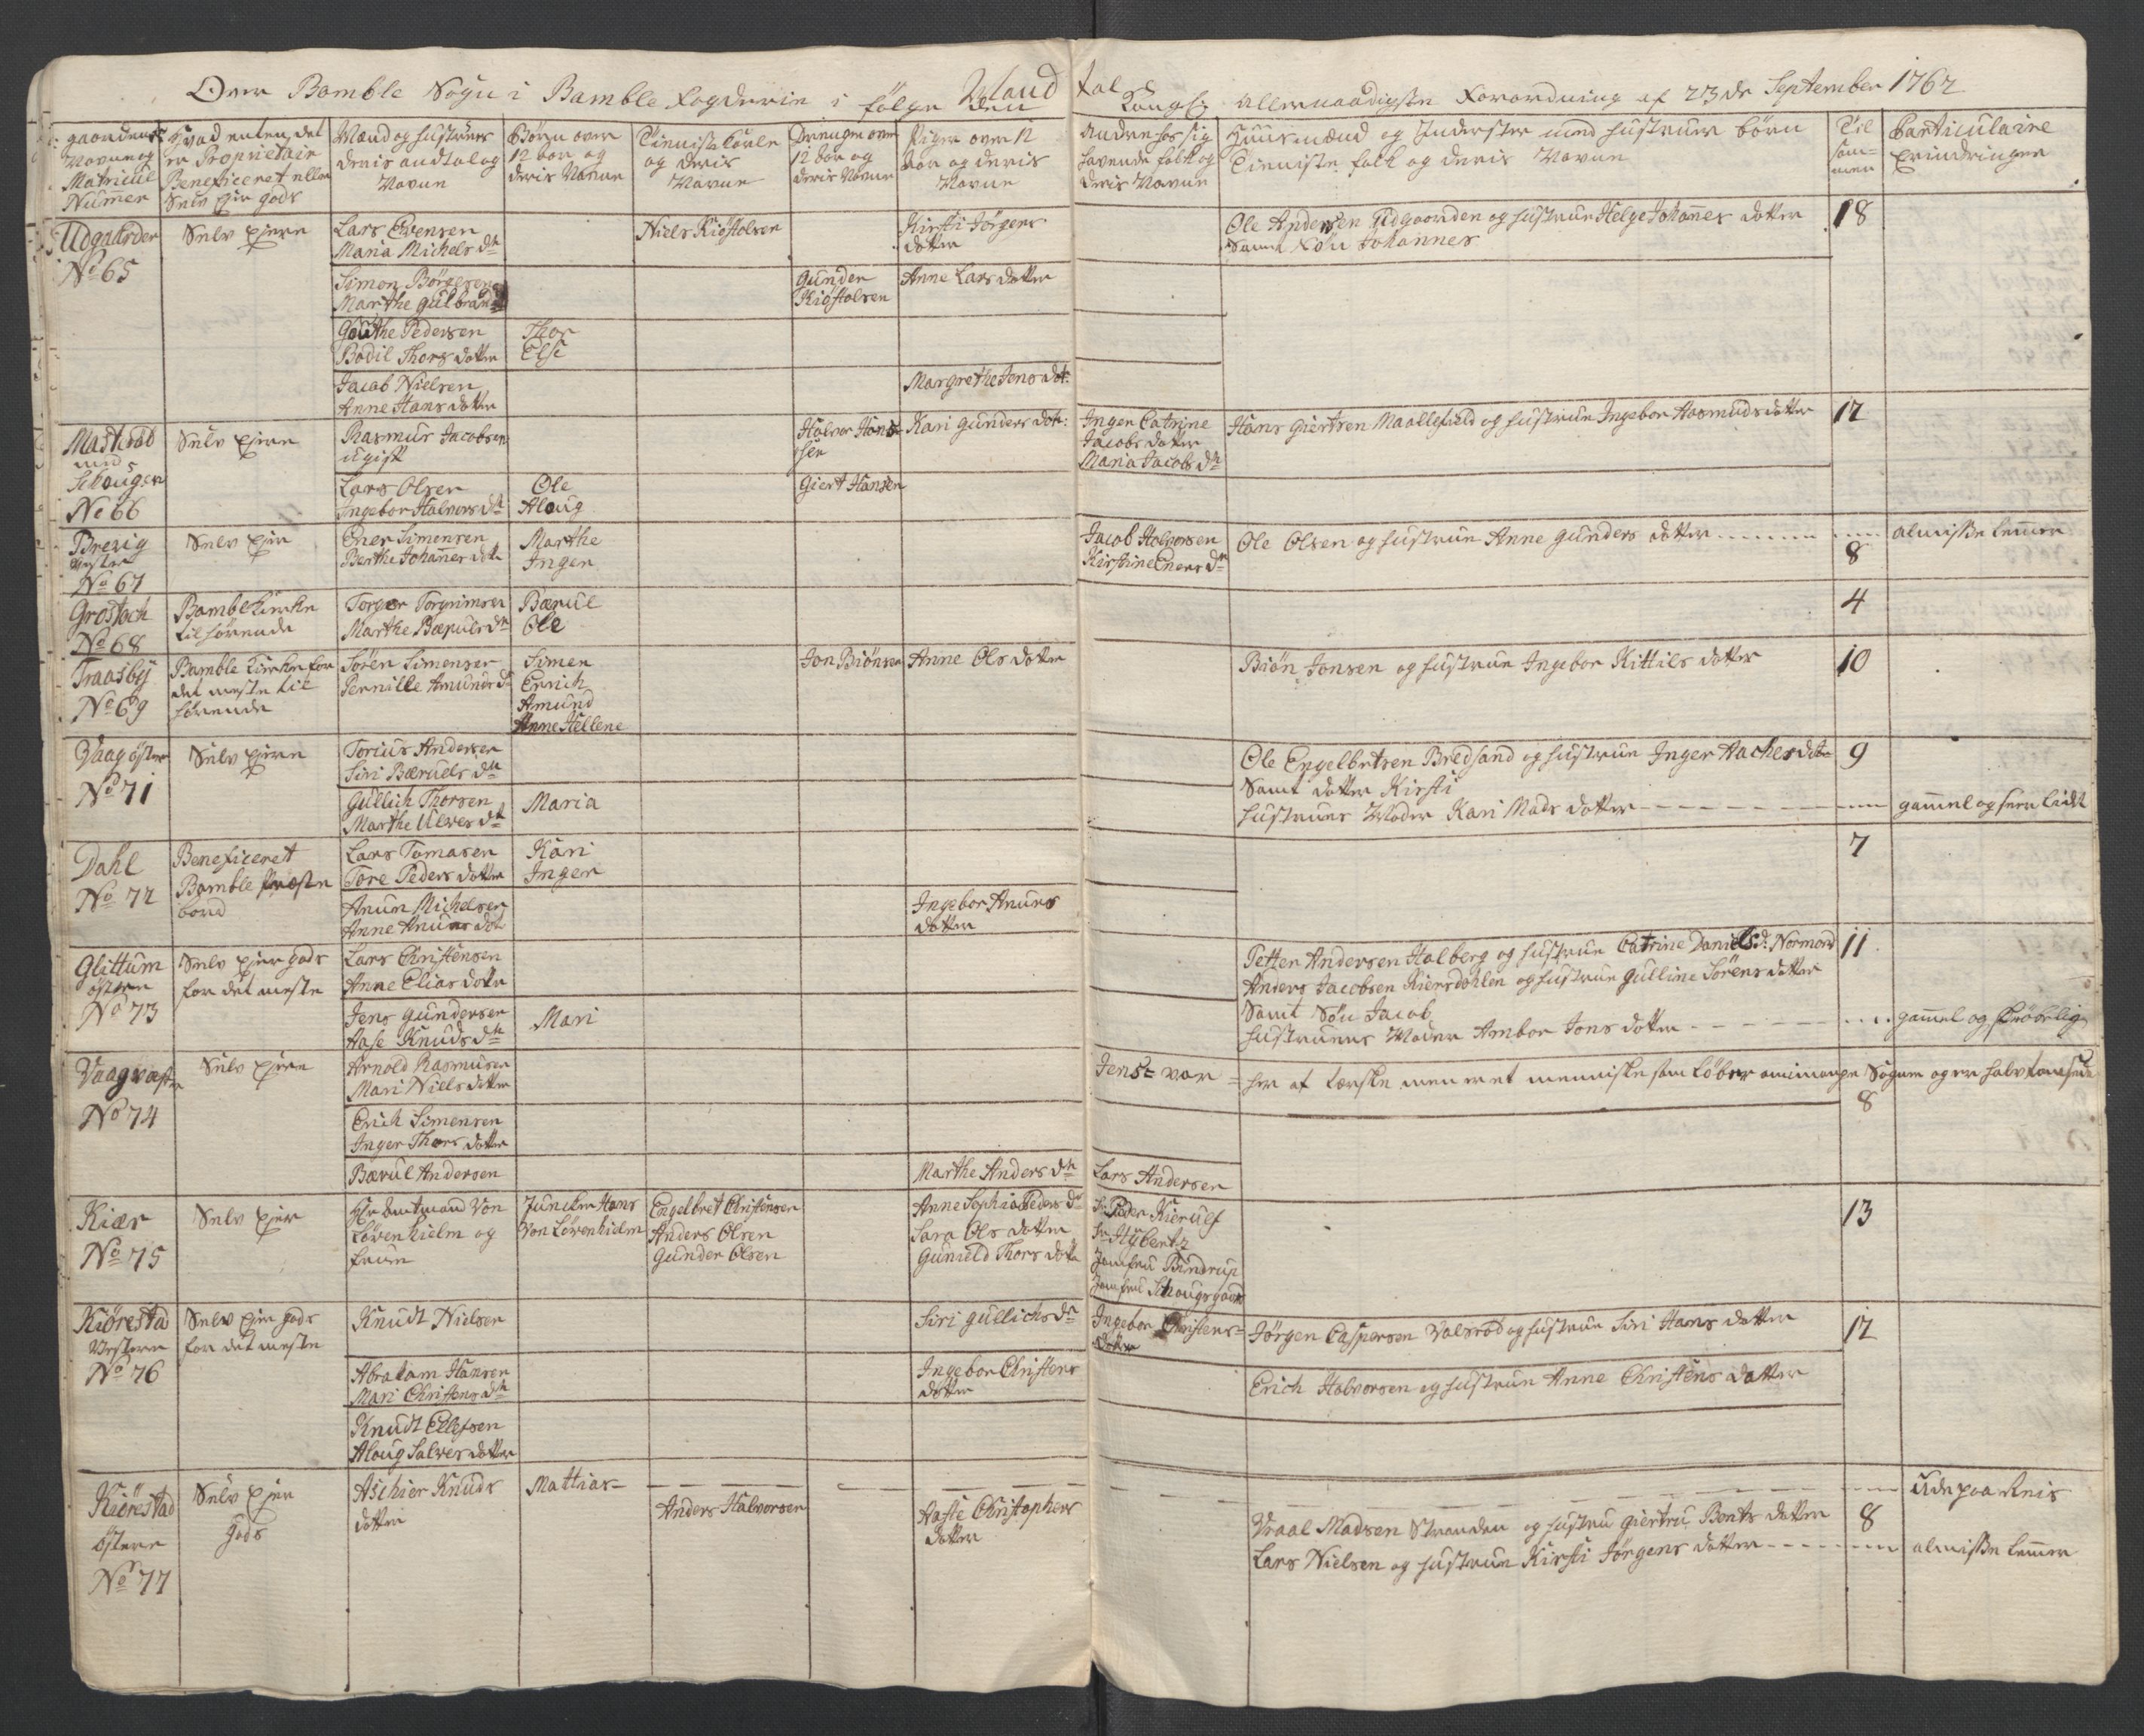 Over Bamble Sogn i Bamble Fogderie i følge den Mand tal
Kongl: allernaadigste Forordning af 23de September 1762
gaardenes
Navne og
Matricul
Numer
Hvad enten det
er Proprietair
Beneficeret eller
Selv Ejer gods
Mænd og hustruer
deris andtal og
Navne
Børn over
12 aar og
deris Navne
Tieniste Karle
og deris
Navne
Drenge over
12 aar og
deris Navne
Piger over 12
aar og deris
Navne
Andre hos sig
havende folk og
deris Navne
Huusmænd og Inderster med hustruer børn
Tieniste folk og deris Navne
Til
sam=
men
Particulaire
Erindringer
Udgaarden
No 65
Selv Ejere
Lars Evensen
Maria Michels dtr
Niels Kiøstolsen
Kirsti Jörgens
dotter
Ole Andersen Udgaarden og hustrue Helge Johannes dotter
Samt Søn Johannes
18
Simon Börgesen
Marthe gulbrands
Gunder
Kiøstolsen
Anne Lars dotter
Gouthe Pedersen
Bodil Thors dotter
Thor
Else
Jacob Nielsen
Anne Hans dotter
Margrethe Jens dot:
Mastrød
med
Schougen
No 66
Selv Ejere
Rasmus Jacobsen
ugift
Halvor Han=
sen
Kari Gunders dotr:
Ingen Catrine
Jacobs dotter
Maria Jacobs dr
Hans Giertsen Maallefield og hustrue Ingebor Aasmuds dotter
12
Lars Olsen
Ingebor Halvors dr
Ole
Aloug
Giert Hansen
Brevig
østre
No 67
Selv Ejer
Ener Simensen
Berthe Johannes dotr
Marthe
Inger
Jacob Halvorsen
Kirstine Eners dr
Ole Olsen og hustrue Anne Gunders dotter
8
almisse lemmer
Grostoch
No 68
Bamble Kirche
tilhørende
Torger Torgrimsen
Marthe Bæruls dr
Bærul
Ole
4
Traasby
No 69
Bamble Kirche for
det meste til
hørende
Sören Simensen
Pernille Amunds dr
Simen
Errich
Amund
Anne Hellene
Jon Biönsen
Anne Ols dotter
Biön Jonsen og hustrue Ingebor Kittils dotter
10
Vaag østre
No 71
Selv Ejere
Torius Andersen
Siri Bæruels dr
Ole Engelbretsen Bredsand og hustrue Inger Aaches dotr
Samt dotter Kirsti
9
Gullich Thorsen
Marthe Ulves dr
Maria
hustrues Moder Kari Mads dotter
gammel og seer lidt
Dahl
No 72
Beneficeret
Bamble Præste
bord
Lars Tomasen
Tore Peders dotter
Kari
Inger
7
Anun Michelsen
Anne Anuns dot
Ingebor Anuns
dotter
Glittum
østere
No 73
Selv Ejer gods
for det meste
Lars Christensen
Anne Elias dotter
Petter Andersen Halberg og hustrue Catrine Daniels d: Normand
Anders Jacobsen Kiersdahlen og hustrue Gulline Sörens dotter
11
Jens Gundersen
Aase Knuds dr
Mari
Samt Søn Jacob
hustruens Moder Ambor Jons dotter
gammel og skrøbelig
Vaag væstre
No 74
Selv Ejere
Arnold Rasmusen
Mari Niels dotter
Jens var
her af Lærske men er et menniske som løber om i mange Sogne og er halv
8
Erich Simensen
Inger Thors dotter
Bærul Andersen
Marthe Anders dr
Lars Andersen
Kiær
No 75
Selv Ejer
Hr Amtmand Von
Lövenhielm og
frue
Juncker Hans
Von Lövenhielm
Engelbret Christensen
Anders Olsen
Gunder Olsen
Anne Sophia Peders dr
Sara Ols dotter
Gunield Thors dotr
Peder Kierulf
Hybertz
Jomfru Bindrup
Jomfru Schougsgaard
13
Kiörestad
Vestere
No 76
Selv Ejer Gods
for det meste
Knudt Nielsen
Siri Gullichs dr
Ingebor Christens=
dotter
Jörgen Caspersen Valsrød og hustrue Siri Hans dotter
12
Abraham Hansen
Mari Christens dr
Ingebor Christens
dotter
Erich Halvorsen og hustrue Anne Christens dotter
Knudt Ellefsen
Aloug Salves dotter
Kiörestad
østere
No 77
Selv Ejer
Gods
Aschier Knuds
dotter
Mathias
Ude paa Reis
Anders Halvorsen
Aasle Christophers
dotter
Vraal Madsen Stranden og hustru Giertru Bents dotter
8
Lars Nielsen og hustrue Kirsti Jörgens dotter
almisse lemmer